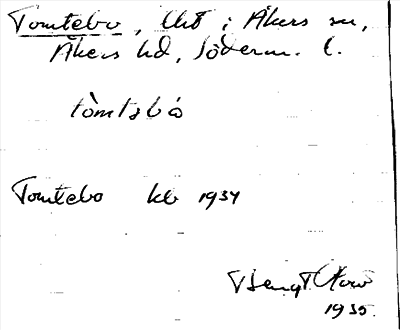 Tomtebo, lht i Åkers sn,
Åkers hd, Söderm. l.
tòmtəbó
Tomtebo kb 1934
Bengt
1935.